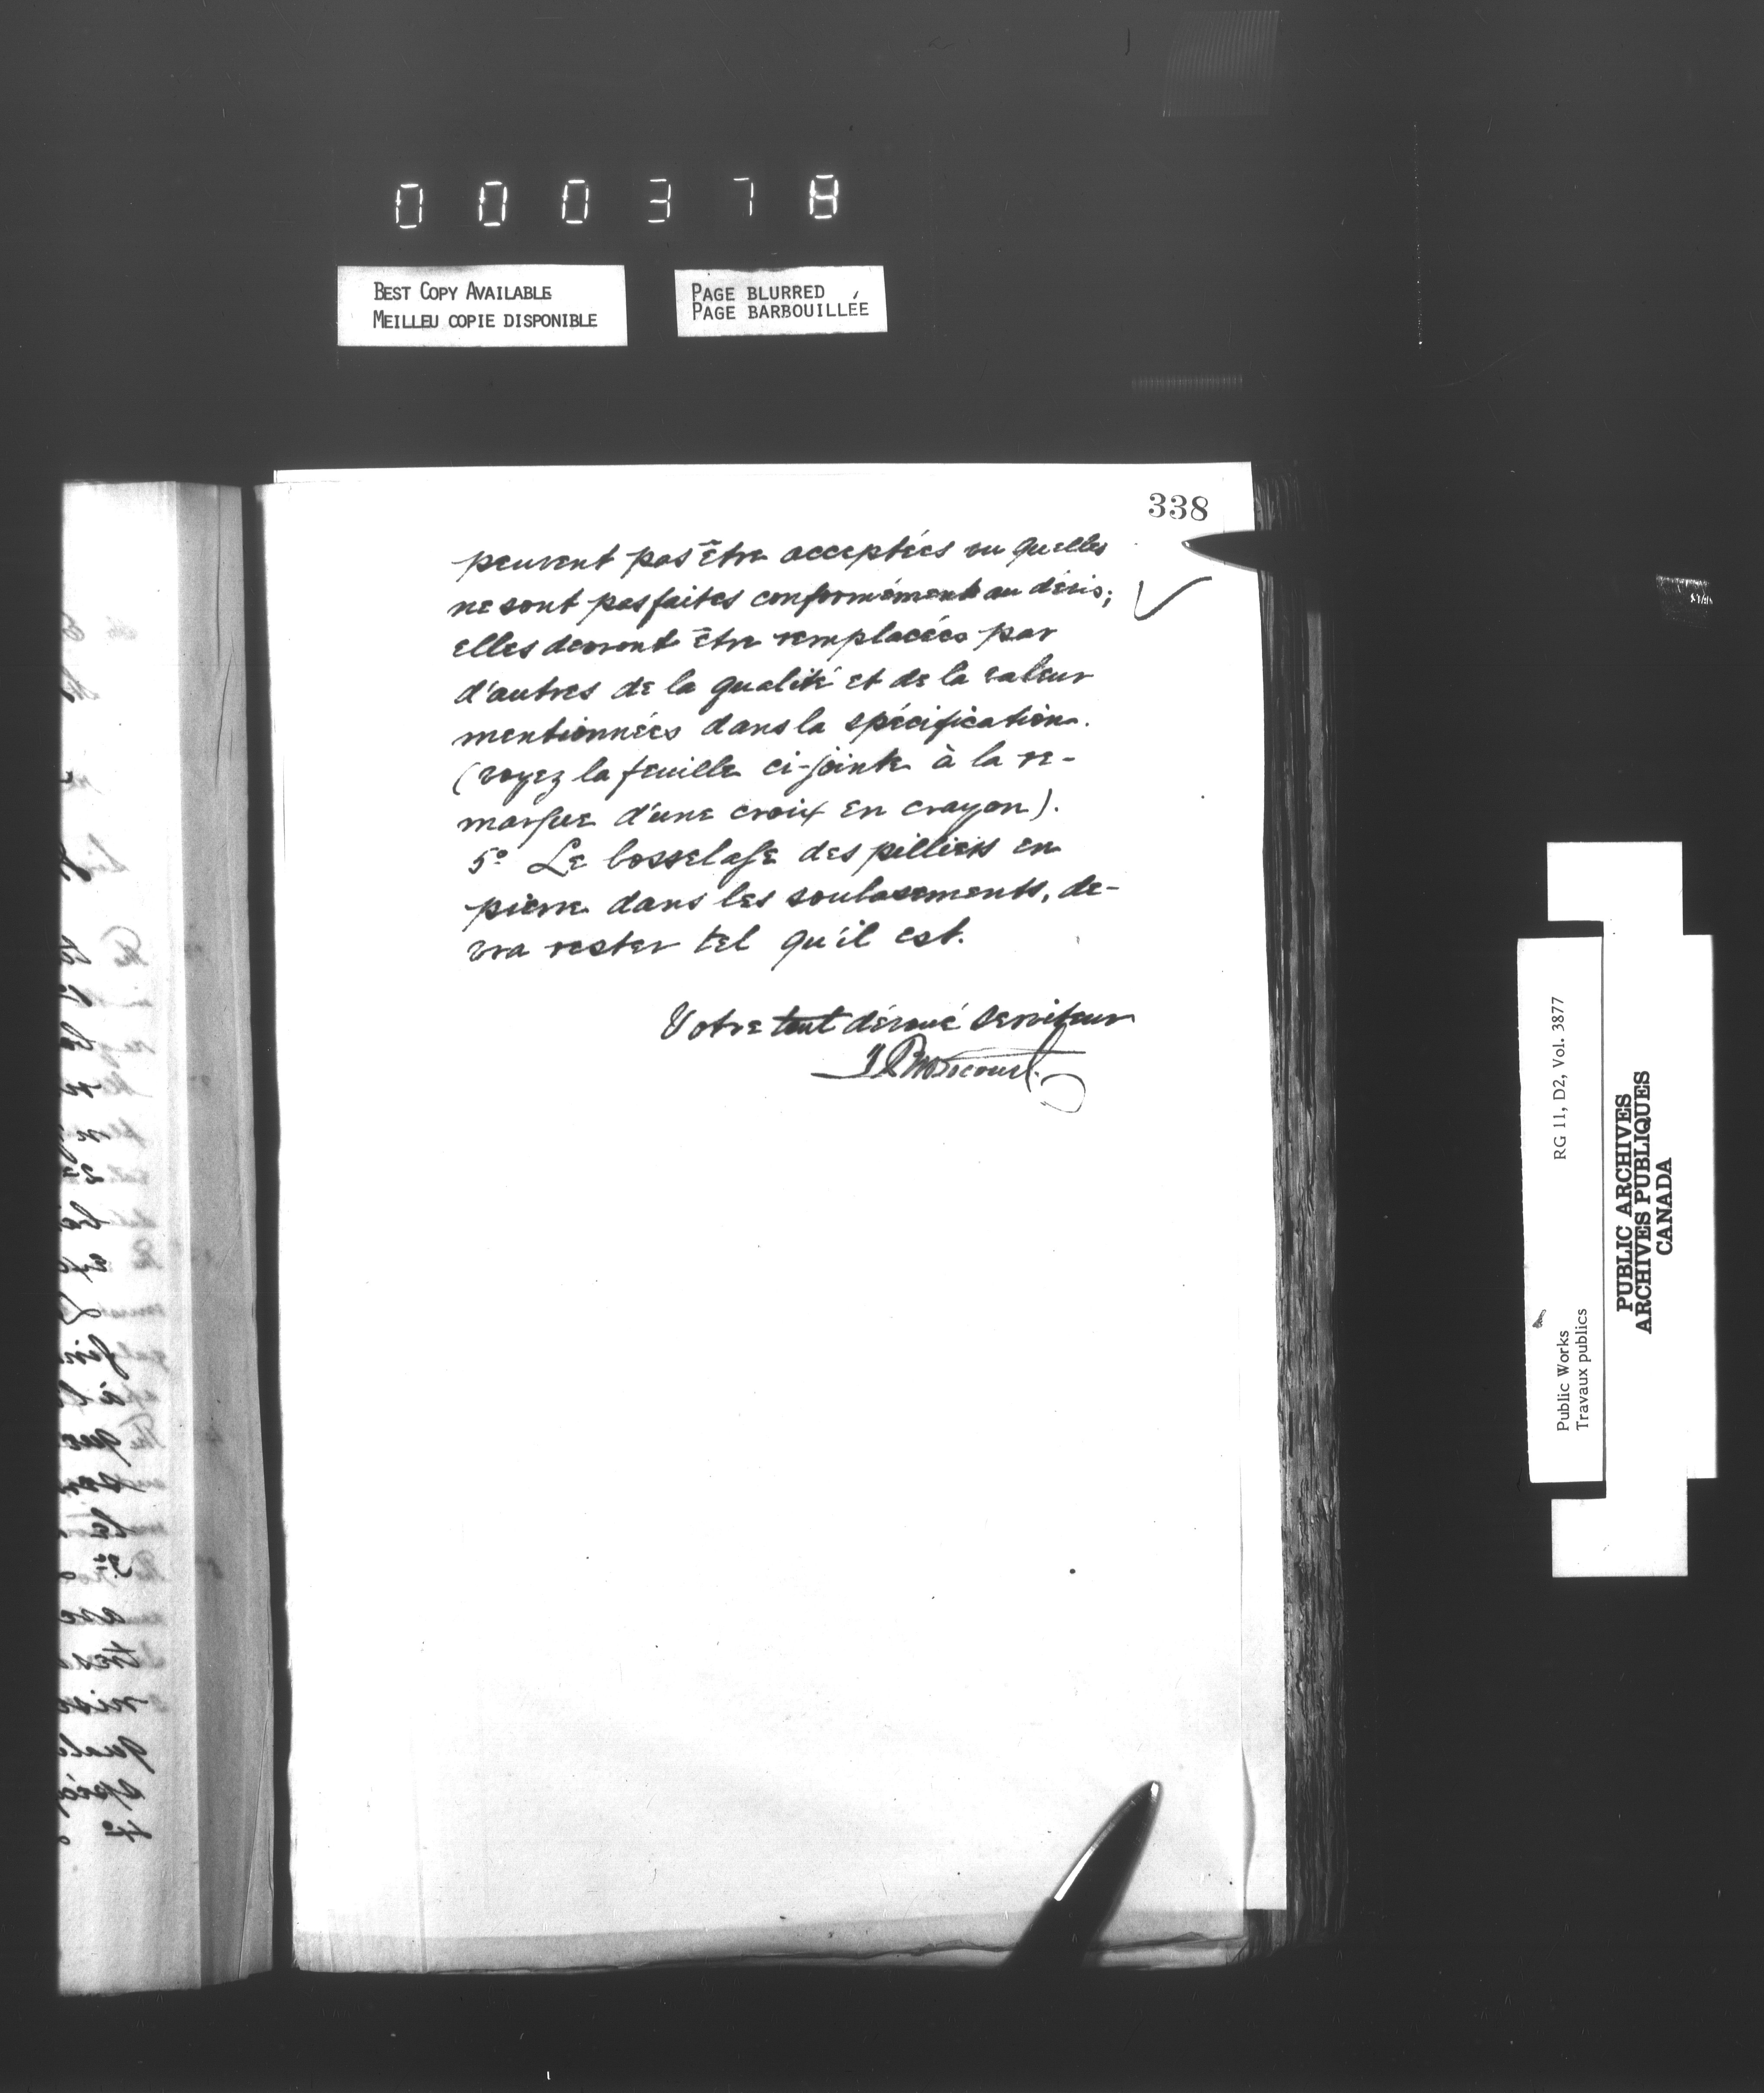 000378
BEST COPY AVAILABLE
MEILLEU COPIE DISPONIBLE
PAGE BLURRED
PAGE BARBOUILLÉE
338
peuvent pas être acceptées vu quelles
ne sont pas faites conformément au dévis;
elles devront être remplacées par
d'autres de la qualité et de la valeur
mentionnées dans la spécification.
(voyez la feuille ci-jointe à la re-
marque d'une croix en crayon).
5º Le bosselage des pilliers en
pierre dans les soubasements, de-
vra rester tel qu'il est.
Votre tout dévoué serviteur
RG 11, D2, Vol. 3877
Public Works
Travaux publics
PUBLIC ARCHIVES
ARCHIVES PUBLIQUES
CANADA